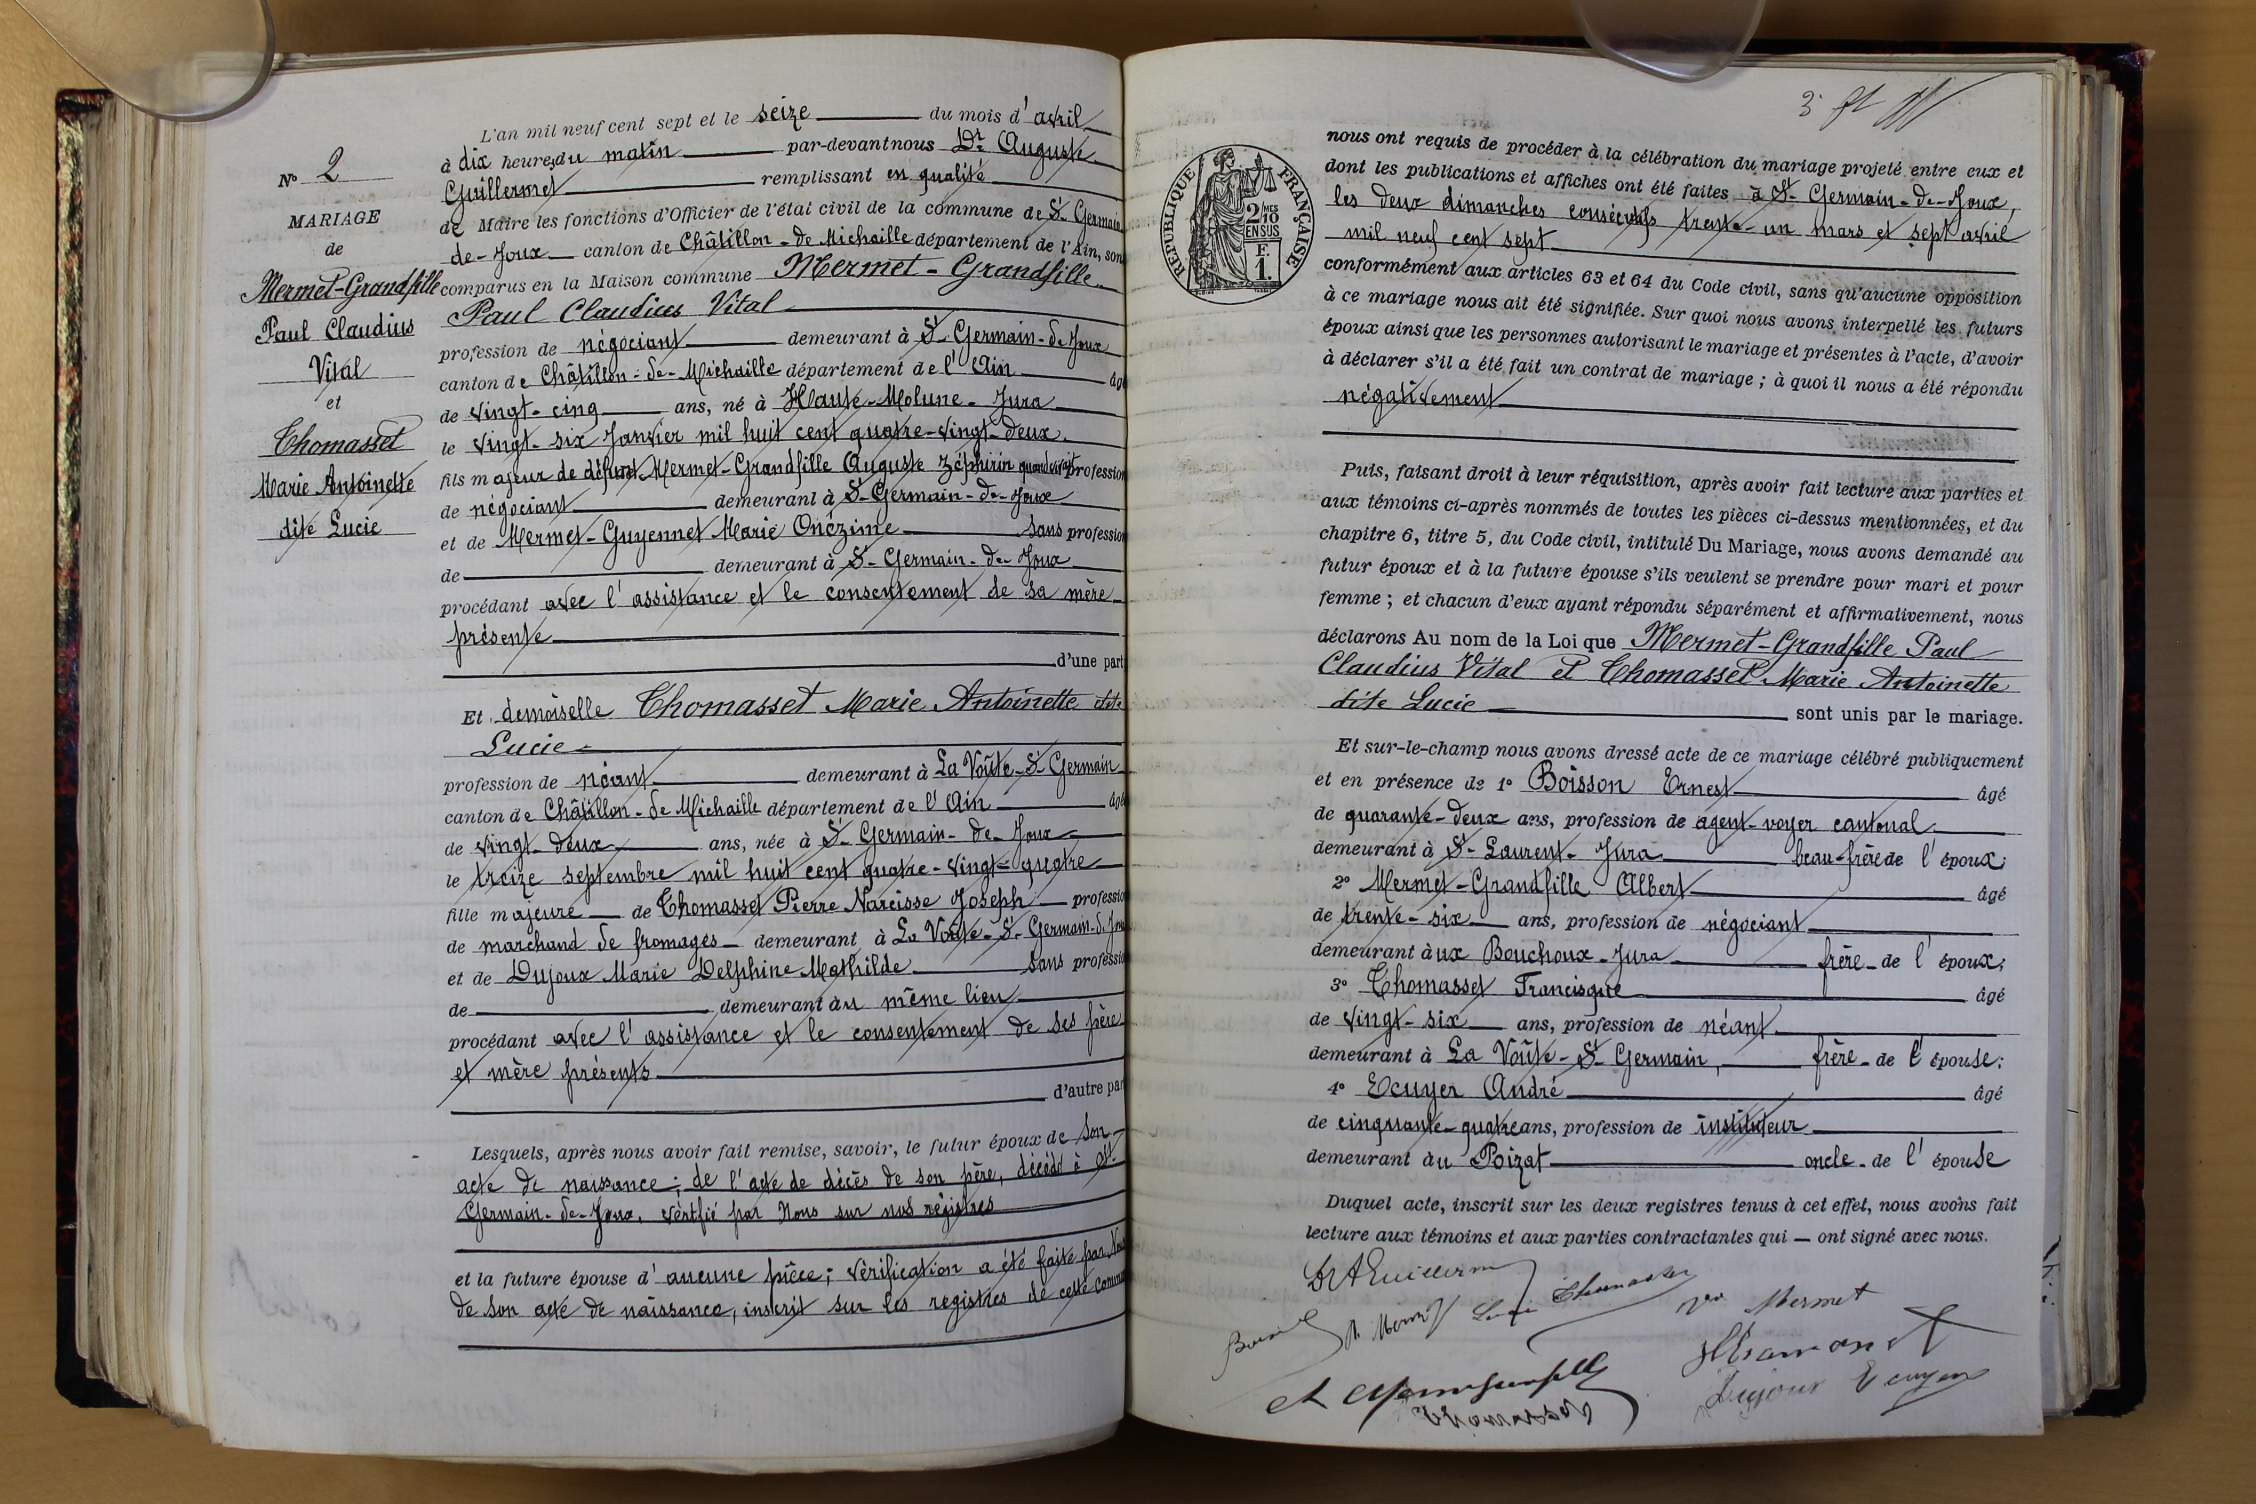 N° 2
MARIAGE
de
Mermet-Grandfille
Paul Claudius
Vital
et
Thomasset
Marie Antoinette
dite Lucie
L'an mil neuf cent sept et le seize du mois d'avril
à dix heures du matin par-devant nous Dr Auguste
Guillermet remplissant en qualité
de Maire les fonctions d'Officier de l'état civil de la commune de St Germain
de-Joux canton de Châtillon-de Michaille département de l'Ain, son
comparus en la Maison commune Mermet-Grandfille
Paul Claudius Vital
profession de négociant demeurant à St Germain-de Joux
canton de Châtillon-de-Michaille département de l'Ain âgé
de vingt-cinq ans, né à Haute-Molune-Jura
le vingt-six Janvier mil huit cent quatre-vingt-deux.
fils majeur de défunt Mermet-Grandfille Auguste Zéphirin quand vivait profession
de négociant demeurant à St-Germain-de-Joux
et de Mermet-Guyennet Marie Onézime sans profession
de demeurant à St-Germain-de-Joux
procédant avec l'assistance et le consentement de sa mère
présente
d'une part
Et demoiselle Thomasset Marie Antoinette dite
Lucie
profession de néant demeurant à La Voûte-St Germain
canton de Châtillon-de Michaille département de l'Ain âgé
de vingt-deux ans, née à St Germain-de-Joux
le treize septembre mil huit cent quatre-vingt-quatre
fille majeure de Thomasset Pierre Narcisse Joseph professio
de marchand de fromages demeurant à La Voûte-St-Germain-d-Joux
et de Dujoux Marie Delphine Mathilde sans professio
de demeurant au même lieu
procédant avec l'assistance et le consentement de ses père
et mère présents
d'autre par
Lesquels, après nous avoir fait remise, savoir, le futur époux de son
acte de naissance; de l'acte de décès de son père, décédé à St-
Germain-de-Joux, vérifié par Nous sur nos régistres
et la future épouse d'aucune pièce; vérification a été faite par Nous
de son acte de naissance, inscrit sur les registres de cette commune
RÉPUBLIQUE FRANÇAISE
2/MES
10
EN SUS
F.
1.
nous ont requis de procéder à la célébration du mariage projeté entre eux et
dont les publications et affiches ont été faites à St-Germain-de-Joux,
les deux dimanches consécutifs trente-un mars et sept avril
mil neuf cent sept
conformément aux articles 63 et 64 du Code civil, sans qu'aucune opposition
à ce mariage nous ait été signifiée. Sur quoi nous avons interpellé les futurs
époux ainsi que les personnes autorisant le mariage et présentes à l'acte, d'avoir
à déclarer s'il a été fait un contrat de mariage; à quoi il nous a été répondu
négativement
Puis, faisant droit à leur réquisition, après avoir fait lecture aux parties et
aux témoins ci-après nommés de toutes les pièces ci-dessus mentionnées, et du
chapitre 6, titre 5, du Code civil, intitulé Du Mariage, nous avons demandé au
futur époux et à la future épouse s'ils veulent se prendre pour mari et pour
femme; et chacun d'eux ayant répondu séparément et affirmativement, nous
déclarons Au nom de la Loi que Mermet-Grandfille Paul
Claudius Vital et Thomasset Marie Antoinette
dite Lucie sont unis par le mariage.
Et sur-le-champ nous avons dressé acte de ce mariage célébré publiquement
et en présence de 1° Boisson Ernest âgé
de quarante-deux ans, profession de agent-voyer cantonal
demeurant à St-Laurent-Jura beau-frère de l'époux;
2° Mermet-Grandfille Albert âgé
de trente-six ans, profession de négociant
demeurant aux Bouchoux-Jura frère-de l'époux;
3° Thomasset Francisque âgé
de vingt-six ans, profession de néant
demeurant à La Voûte-St Germain, frère-de l'épouse;
4° Ecuyer André âgé
de cinquante-quatre ans, profession de instituteur
demeurant au Poizat oncle-de l'épouse
Duquel acte, inscrit sur les deux registres tenus à cet effet, nous avons fait
lecture aux témoins et aux parties contractantes qui — ont signé avec nous.
Dr A Guillermet
Lucie Thomasset
Vve Mermet
Thomasset
Dujoux Ecuyer